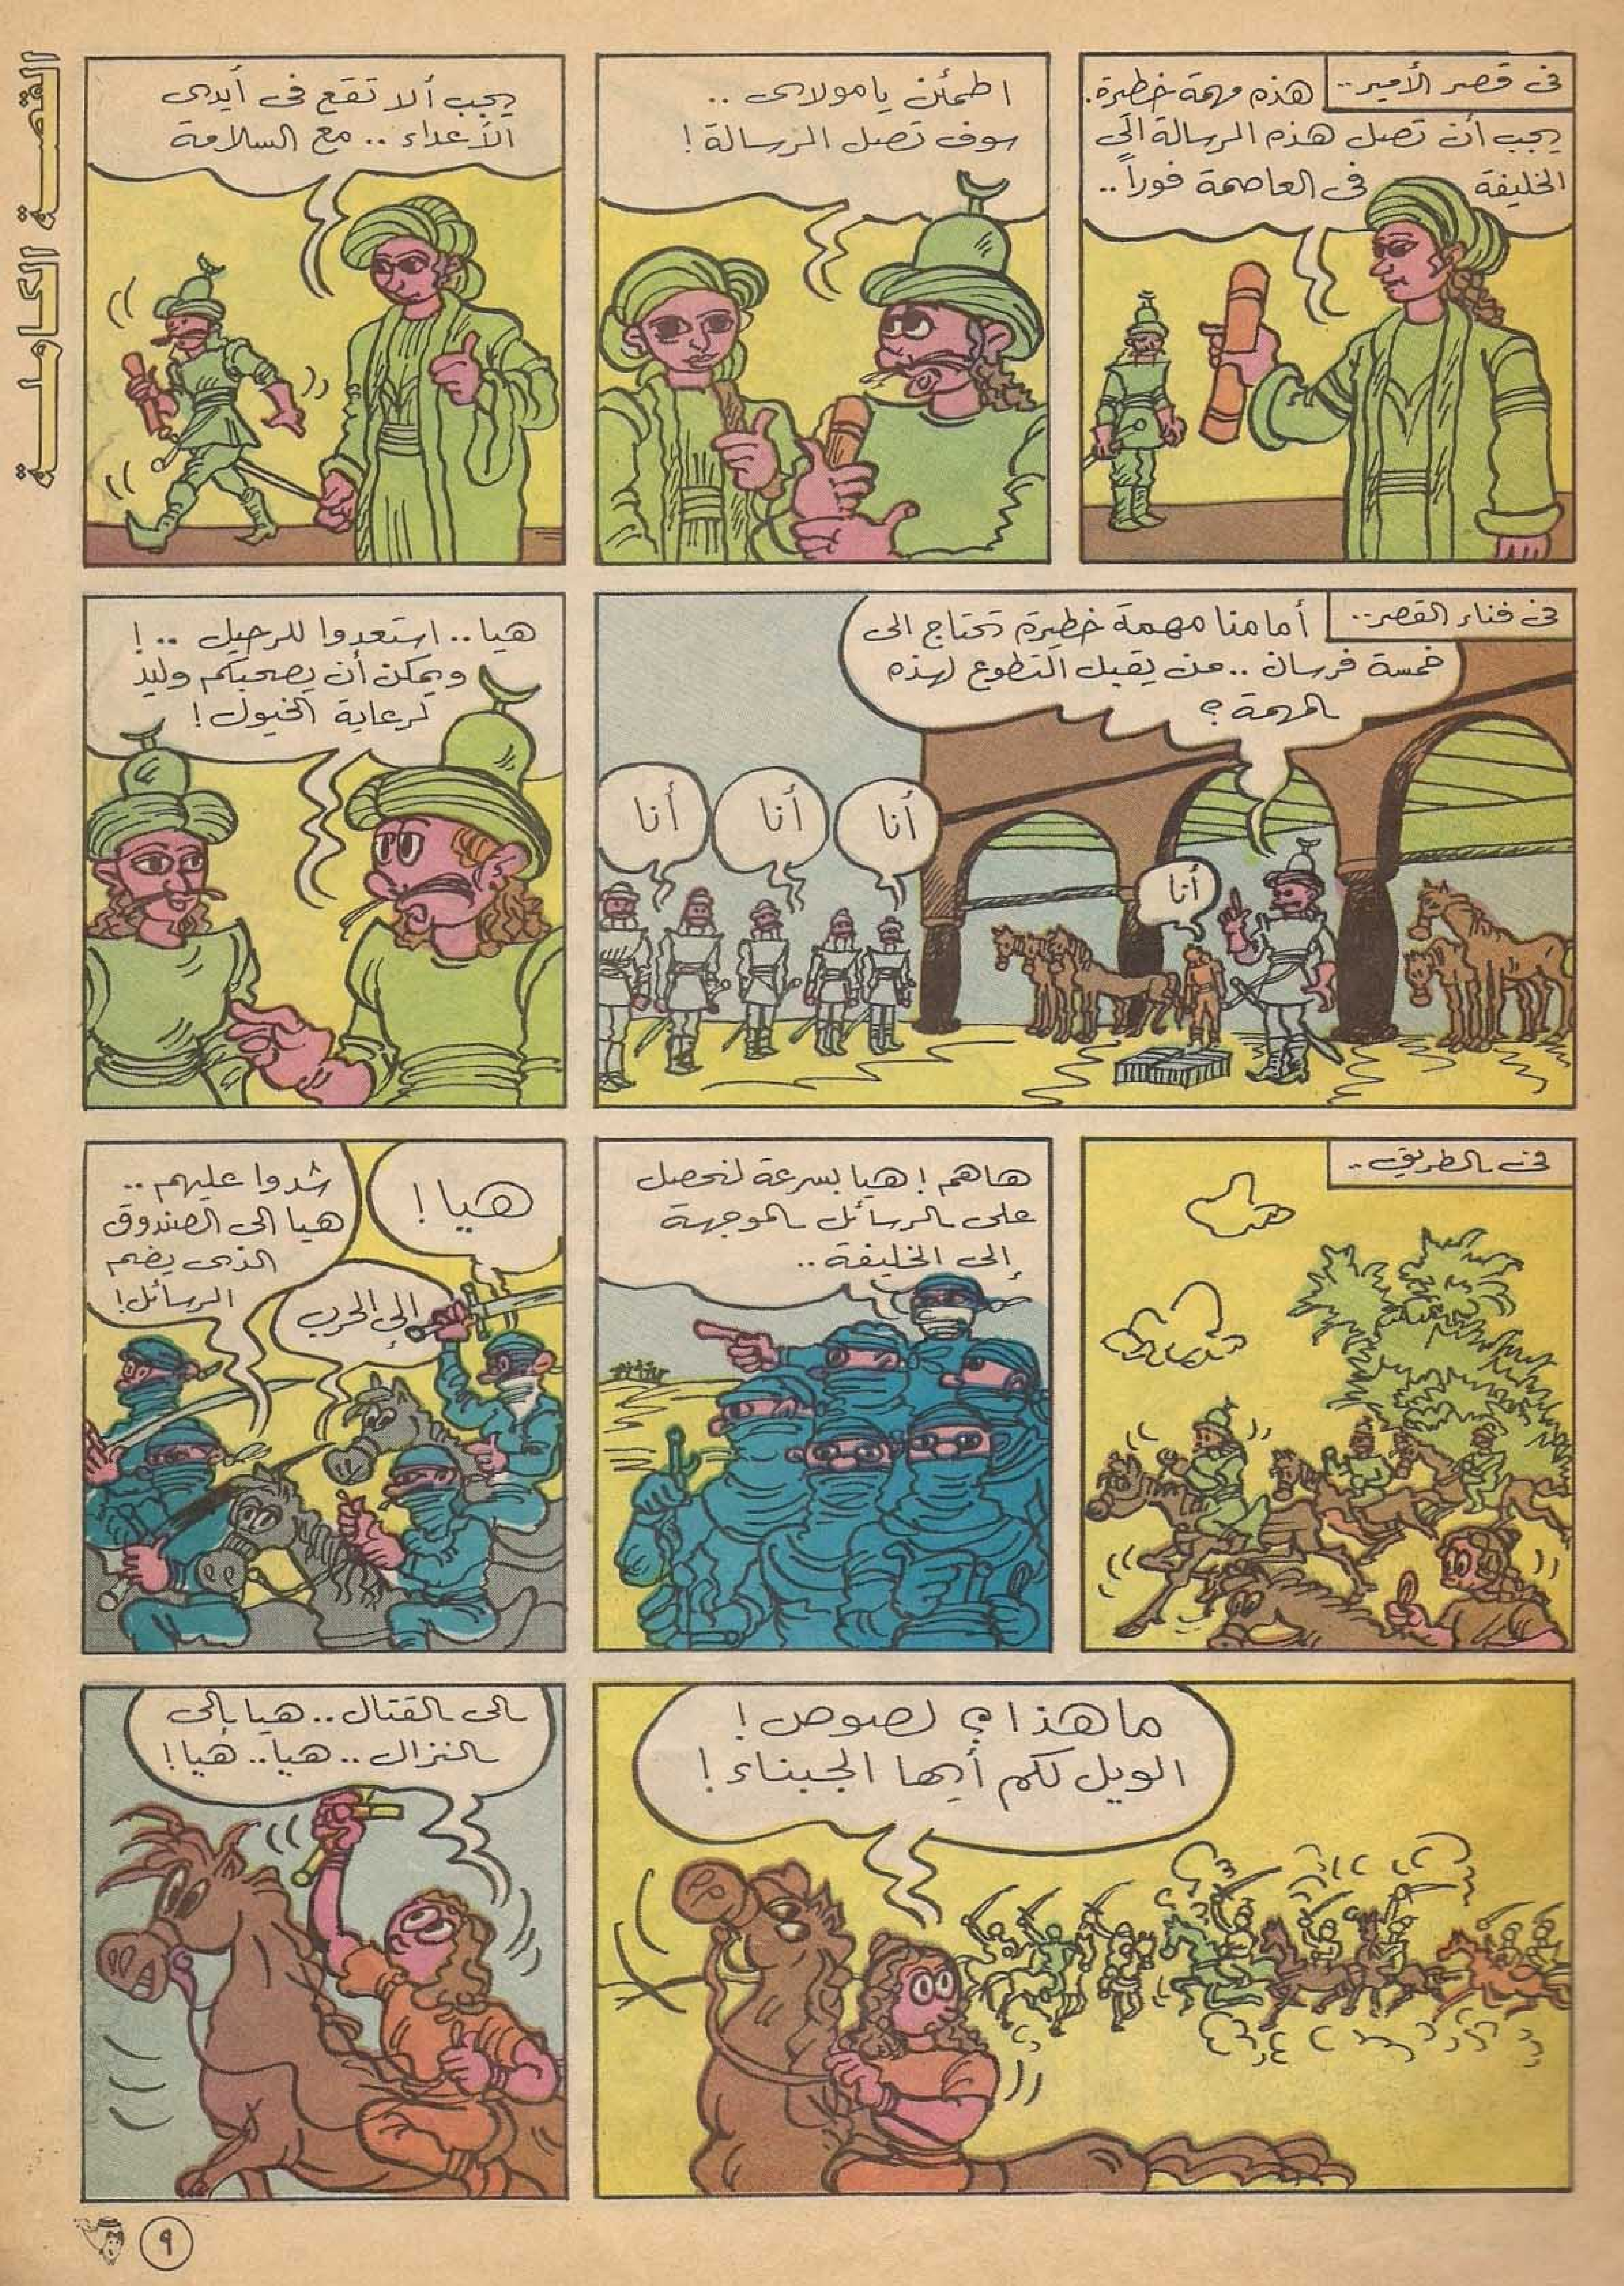 القصة الكاملة
فى قصر الأمير..
هذه مهمة خطيرة.
يجب أن تصل هذه الرسالة الى
الخليفة فى العاصمة فوراً..
اطمئن يا مولاى ..
سوف تصل الرسالة !
يجب ألا تقع فى أيدى
الأعداء .. مع السلامة
فى فناء القصر..
أمامنا مهمة خطيرة تحتاج الى
خمسة فرسان .. من يقبل التطوع لهذه
المهمة ؟
أنا
أنا
أنا
أنا
هيا .. استعدوا للرحيل .. !
ويمكن أن يصحبكم وليد
لرعاية الخيول !
فى الطريق ..
هاهم ! هيا بسرعة لنحصل
على الرسائل الموجهة
إلى الخليفة ..
هيا !
إلى الحرب
شدوا عليهم ..
هيا الى الصندوق
الذى يضم
الرسائل !
ما هذا ؟ لصوص !
الويل لكم أيها الجبناء !
الى القتال .. هيا إلى
النزال .. هيا .. هيا !
٩